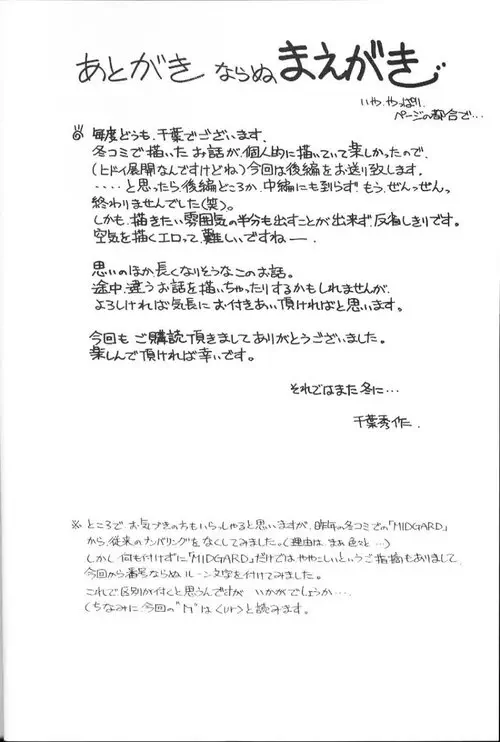 あとがき ならぬ まえがき
いや、やっぱり、
ページの都合で…
毎度どうも、千葉でございます。
冬コミで描いたお話が、個人的に描いていて楽しかったので、
(ヒドイ展開なんですけどね)今回は後編をお送り致します。
‥‥と思ったら、後編どころか、中編にも到らずもう、ぜんっぜん、
終わりませんでした(笑)。
しかも、描きたい雰囲気の半分も出すことが出来ず、反省しきりです。
空気を描くエロって、難しいですねー。
思いのほか長くなりそうなこのお話。
途中、違うお話を描いちゃったりするかもしれませんが、
よろしければ気長にお付きあい頂ければと思います。
今回も ご購読頂きましてありがとうございました。
楽しんで頂ければ幸いです。
それではまた冬に…
千葉秀作.
※ ところで お気づきの方もいらっしゃると思いますが、昨年の冬コミでの「MIDGARD」
から、従来のナンバリングをなくしてみました。(理由は、まぁ色々と…)
しかし 何も付けずに「MIDGARD」だけでは ややこしいという ご指摘もありまして、
今回から番号ならぬ ルーン文字を付けてみました。
これで区別が付くと思うんですが いかがでしょうか‥‥
(ちなみに今回の"ᛖ"は と読みます。